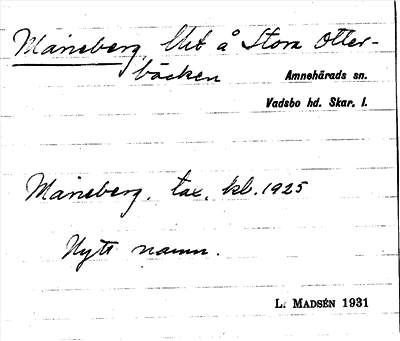 Månsberg, lht å Stora Otter-
bäcken
Amnehärads sn.
Vadsbo hd. Skar. l.
Månsberg. tax. kl. 1925
Nytt namn.
L. MADSÉN 1931